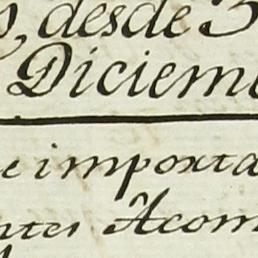 , desde 3
Diciem
e importa
ntes Acom